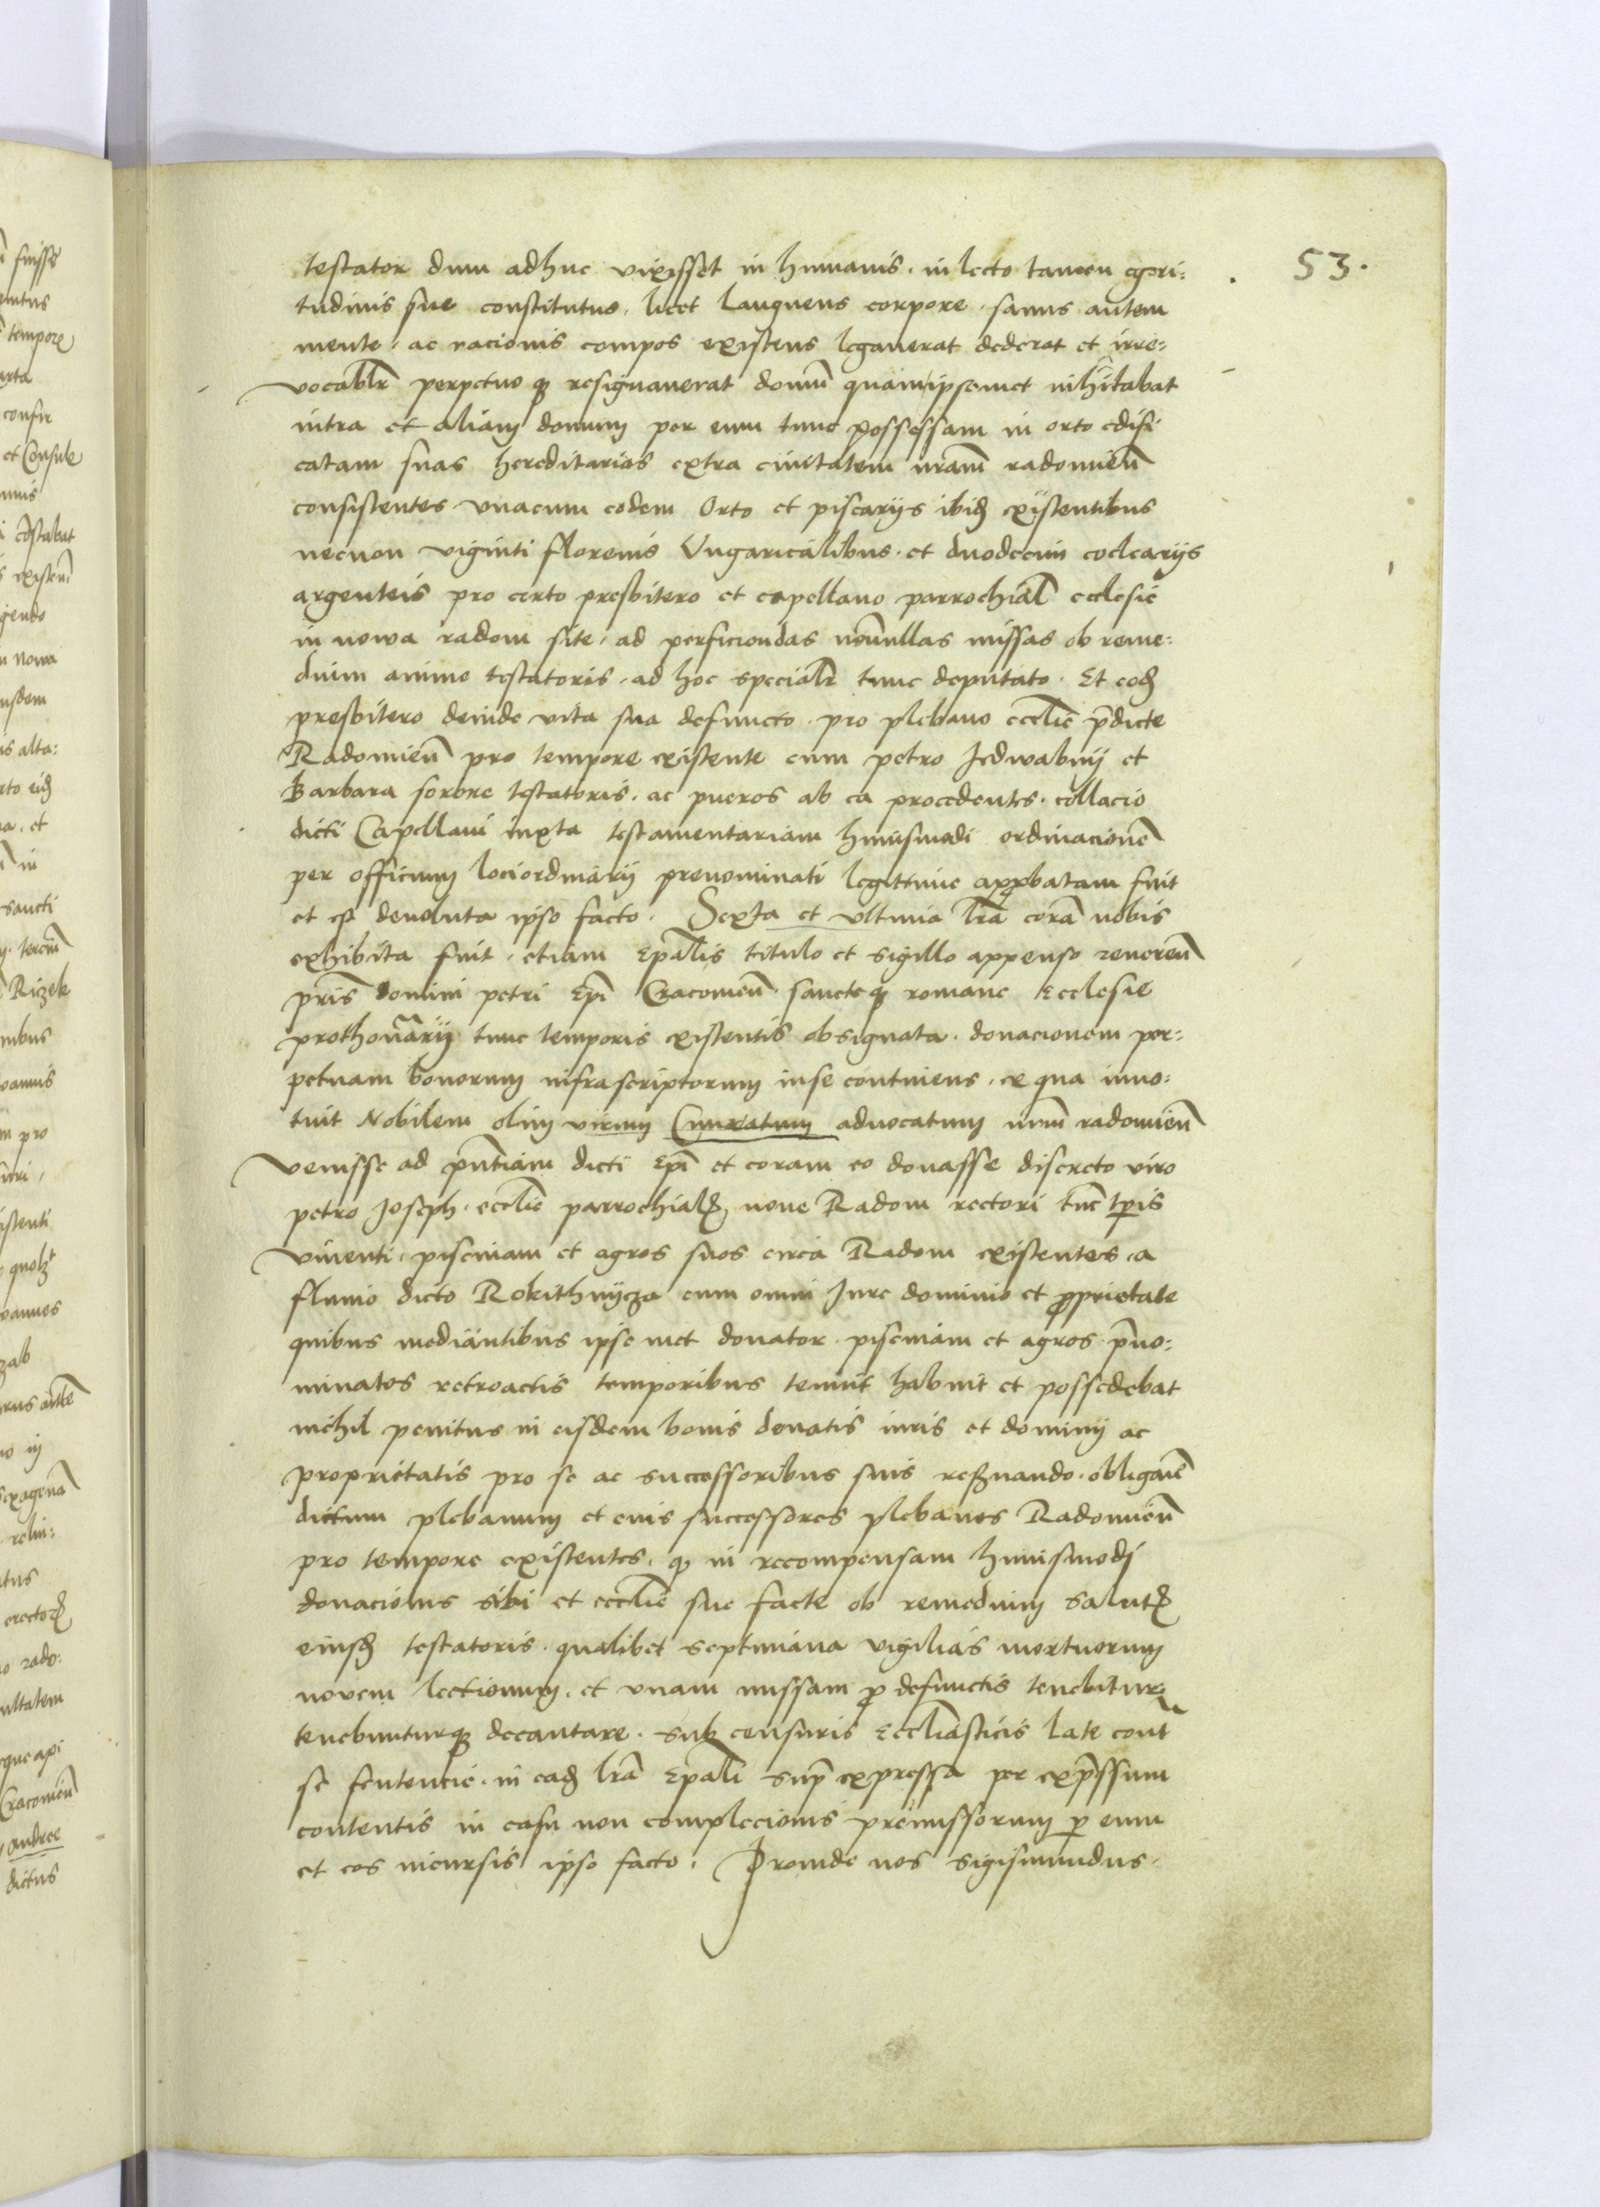 53.
testator dum adhuc vixisset in humanis. in lecto tamen egri-
tudinis sue constitutus, licet languens corpore. sanus autem
mente. ac racionis compos existens legauerat dederat et irre-
vocablr perpetuo q resignauerat domū quam ipsemet inhītabat
intra et aliam domum per eum tunc possessam in orto edifi
catam suas hereditarias extra ciuitatem nr̄am radomien̄
consistentes vnacum eodem Orto et piscarijs ibid existentibus
necnon viginti florenis Vngaricalibus. et duodecim coclearijs
argenteis pro certo presbitero et capellano parrochial ecclesie
in nowa radom site. ad perficiendas nōnullas missas ob reme-
dium anime testatoris. ad hoc specialr tunc deputato. Et eod
presbitero deinde vita sua defuncto. pro plebano ecclie p̄dicte
Radomien̄ pro tempore existente cum petro Jedwabny et
Barbara sorore testatoris. ac pueros ab ea procedentes. collacio
dicti Capellani iuxta testamentariam huiusmodi ordinacionē
per officium lociordinarij prenominati legittime approbatam fuit
et est deuoluta ipso facto. Sexta et vltima lr̄a corā nobis
exhibita fuit. etiam Epalis titulo et sigillo appenso reueren̄
pr̄is domini petri Epī Cracouien̄. sancteq romane Ecclesie
prothon̄arij tunc temporis existentis obsignata. donacionem per-
petuam bonorum infrascriptorum inse continens. ex qua inno-
tuit Nobilem olim virum Cunratum aduocatum nrūm radomien̄
venisse ad pn̄tiam dicti Epī et coram eo donasse discreto viro
petro Joseph. ecclie parrochial noue Radom rectori tūc tp̄is
viuenti. piscinam et agros suos circa Radom existentes. a
fluuio dicto Rokithnycza cum omni Jure dominio et proprietate
quibus mediantibus ipse met donator. piscinam et agros p̄no-
minatos retroactis temporibus tenuit habuit et possedebat
nichil penitus in eisdem bonis donatis iuris et dominij ac
proprietatis pro se ac successoribus suis res̄uando. obligauē
dictum plebanum et eius successores plebanos Radomien̄
pro tempore existentes. q in recompensam huiusmodi
donacionis sibi et ecclie sue facte ob remedium salut
eiusd testatoris. qualibet septimana vigilias mortuorum
nouem lectionum. et vnam missam p defunctis tenebitur
tenebunturq decantare. sub censuris Eccliasticis late cont
se sentencie. in ead lr̄a Epali sup expressa per exp̄ssum
contentis in casu non complecionis premissorum p eum
et eos incursis ipso facto. Proinde nos Sigismundus.